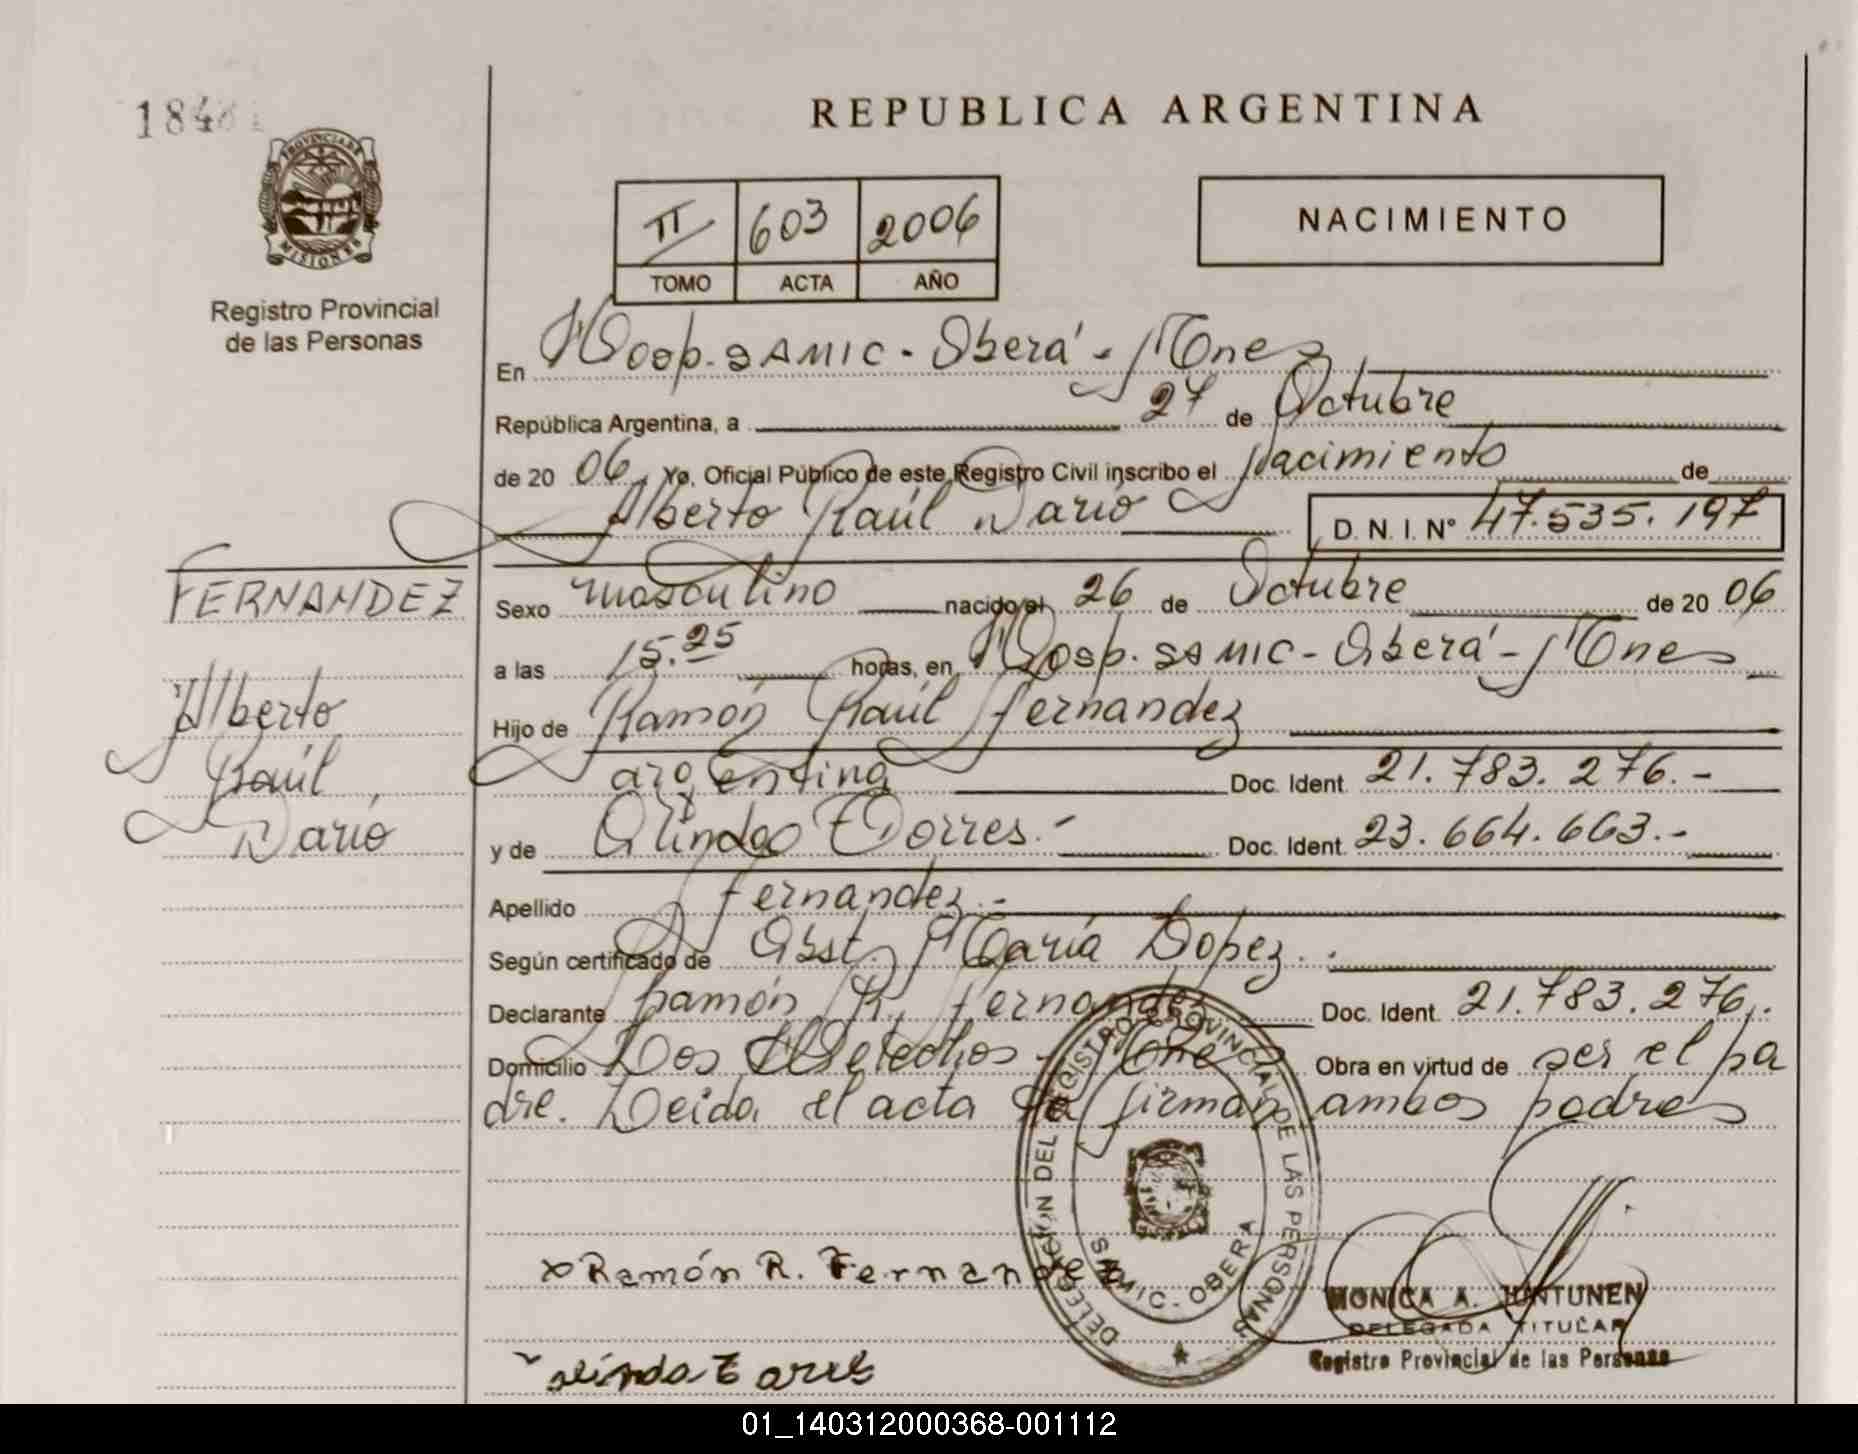 REPUBLICA ARGENTINA
PROVINCIA DE MISIONES
Registro Provincial
de las Personas
II 603 2006
TOMO ACTA AÑO
NACIMIENTO
En Hosp. SAMIC - Oberá - Mnes
República Argentina, a 27 de Octubre
de 20 06 Yo, Oficial Público de este Registro Civil inscribo el Nacimiento de
Alberto Raúl Darío D. N. I. N° 47.535.197
FERNANDEZ
Alberto
Raúl
Darío
Sexo masculino nacido el 26 de Octubre de 20 06
a las 15.25 horas, en Hosp. SAMIC - Oberá - Mnes
Hijo de Ramón Raúl Fernandez
argentina Doc. Ident. 21.783.276.-
y de Olinda Torres.- Doc. Ident. 23.664.663.-
Apellido Fernandez.-
Según certificado de Obst. María Lopez.
Declarante Ramón R. Fernandez Doc. Ident. 21.783.276.
Domicilio Los Helechos - Mnes Obra en virtud de ser el pa
dre. Leida el acta la firman ambos padres
x Ramón R. Fernandez
DELEGACIÓN DEL REGISTRO PROVINCIAL DE LAS PERSONAS
SAMIC - OBERA
MONICA A. JUNTUNEN
DELEGADA TITULAR
Registro Provincial de las Personas
01_140312000368-001112